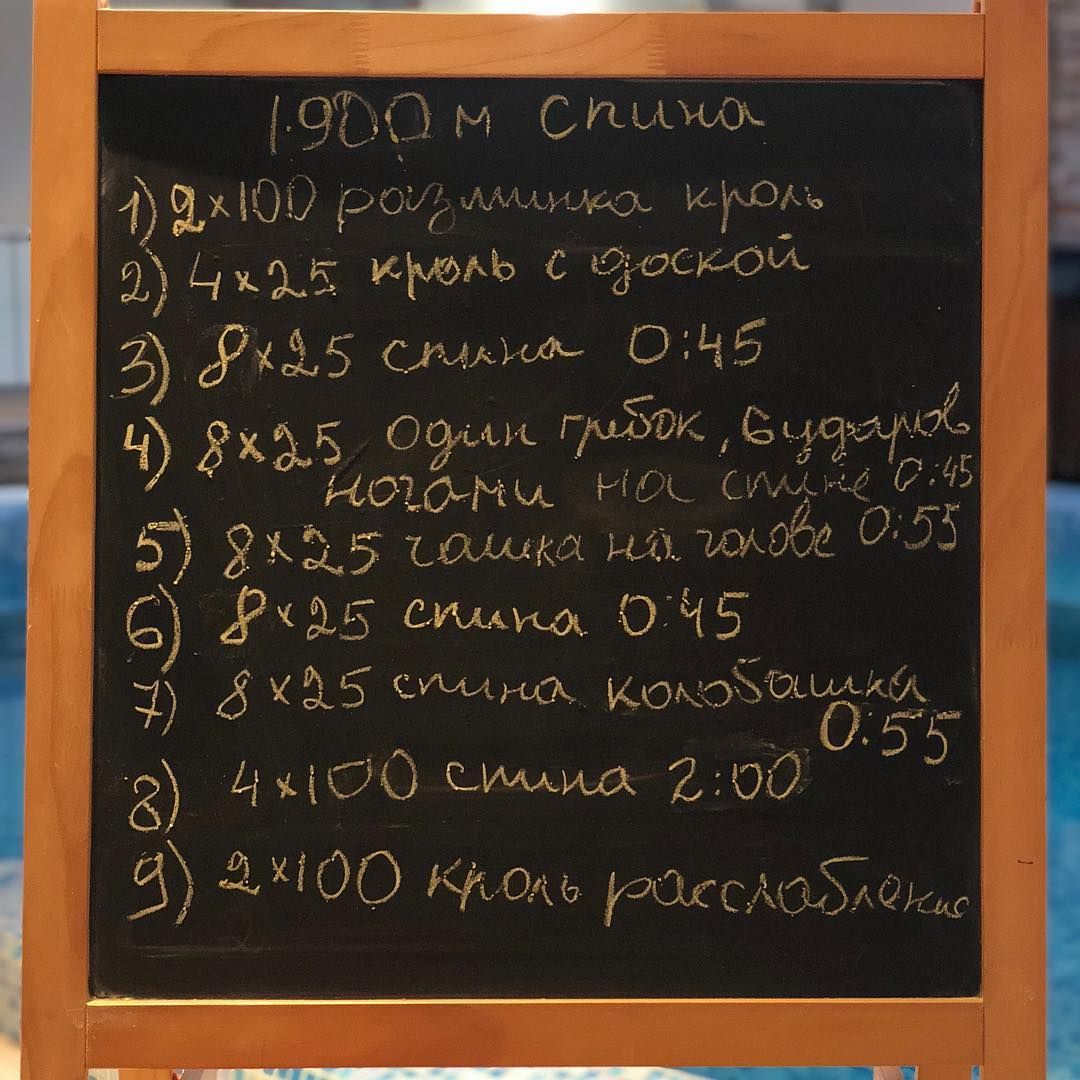 1.900 м спина
1) 2×100 разминка кроль
2) 4×25 кроль с доской
3) 8×25 спина 0:45
4) 8×25 Один гребок, 6 ударов
ногами на спине 0:45
5) 8×25 чашка на голове 0:55
6) 8×25 спина 0:45
7) 8×25 спина колобашка
0:55
8) 4×100 спина 2:00
9) 2×100 кроль расслабление